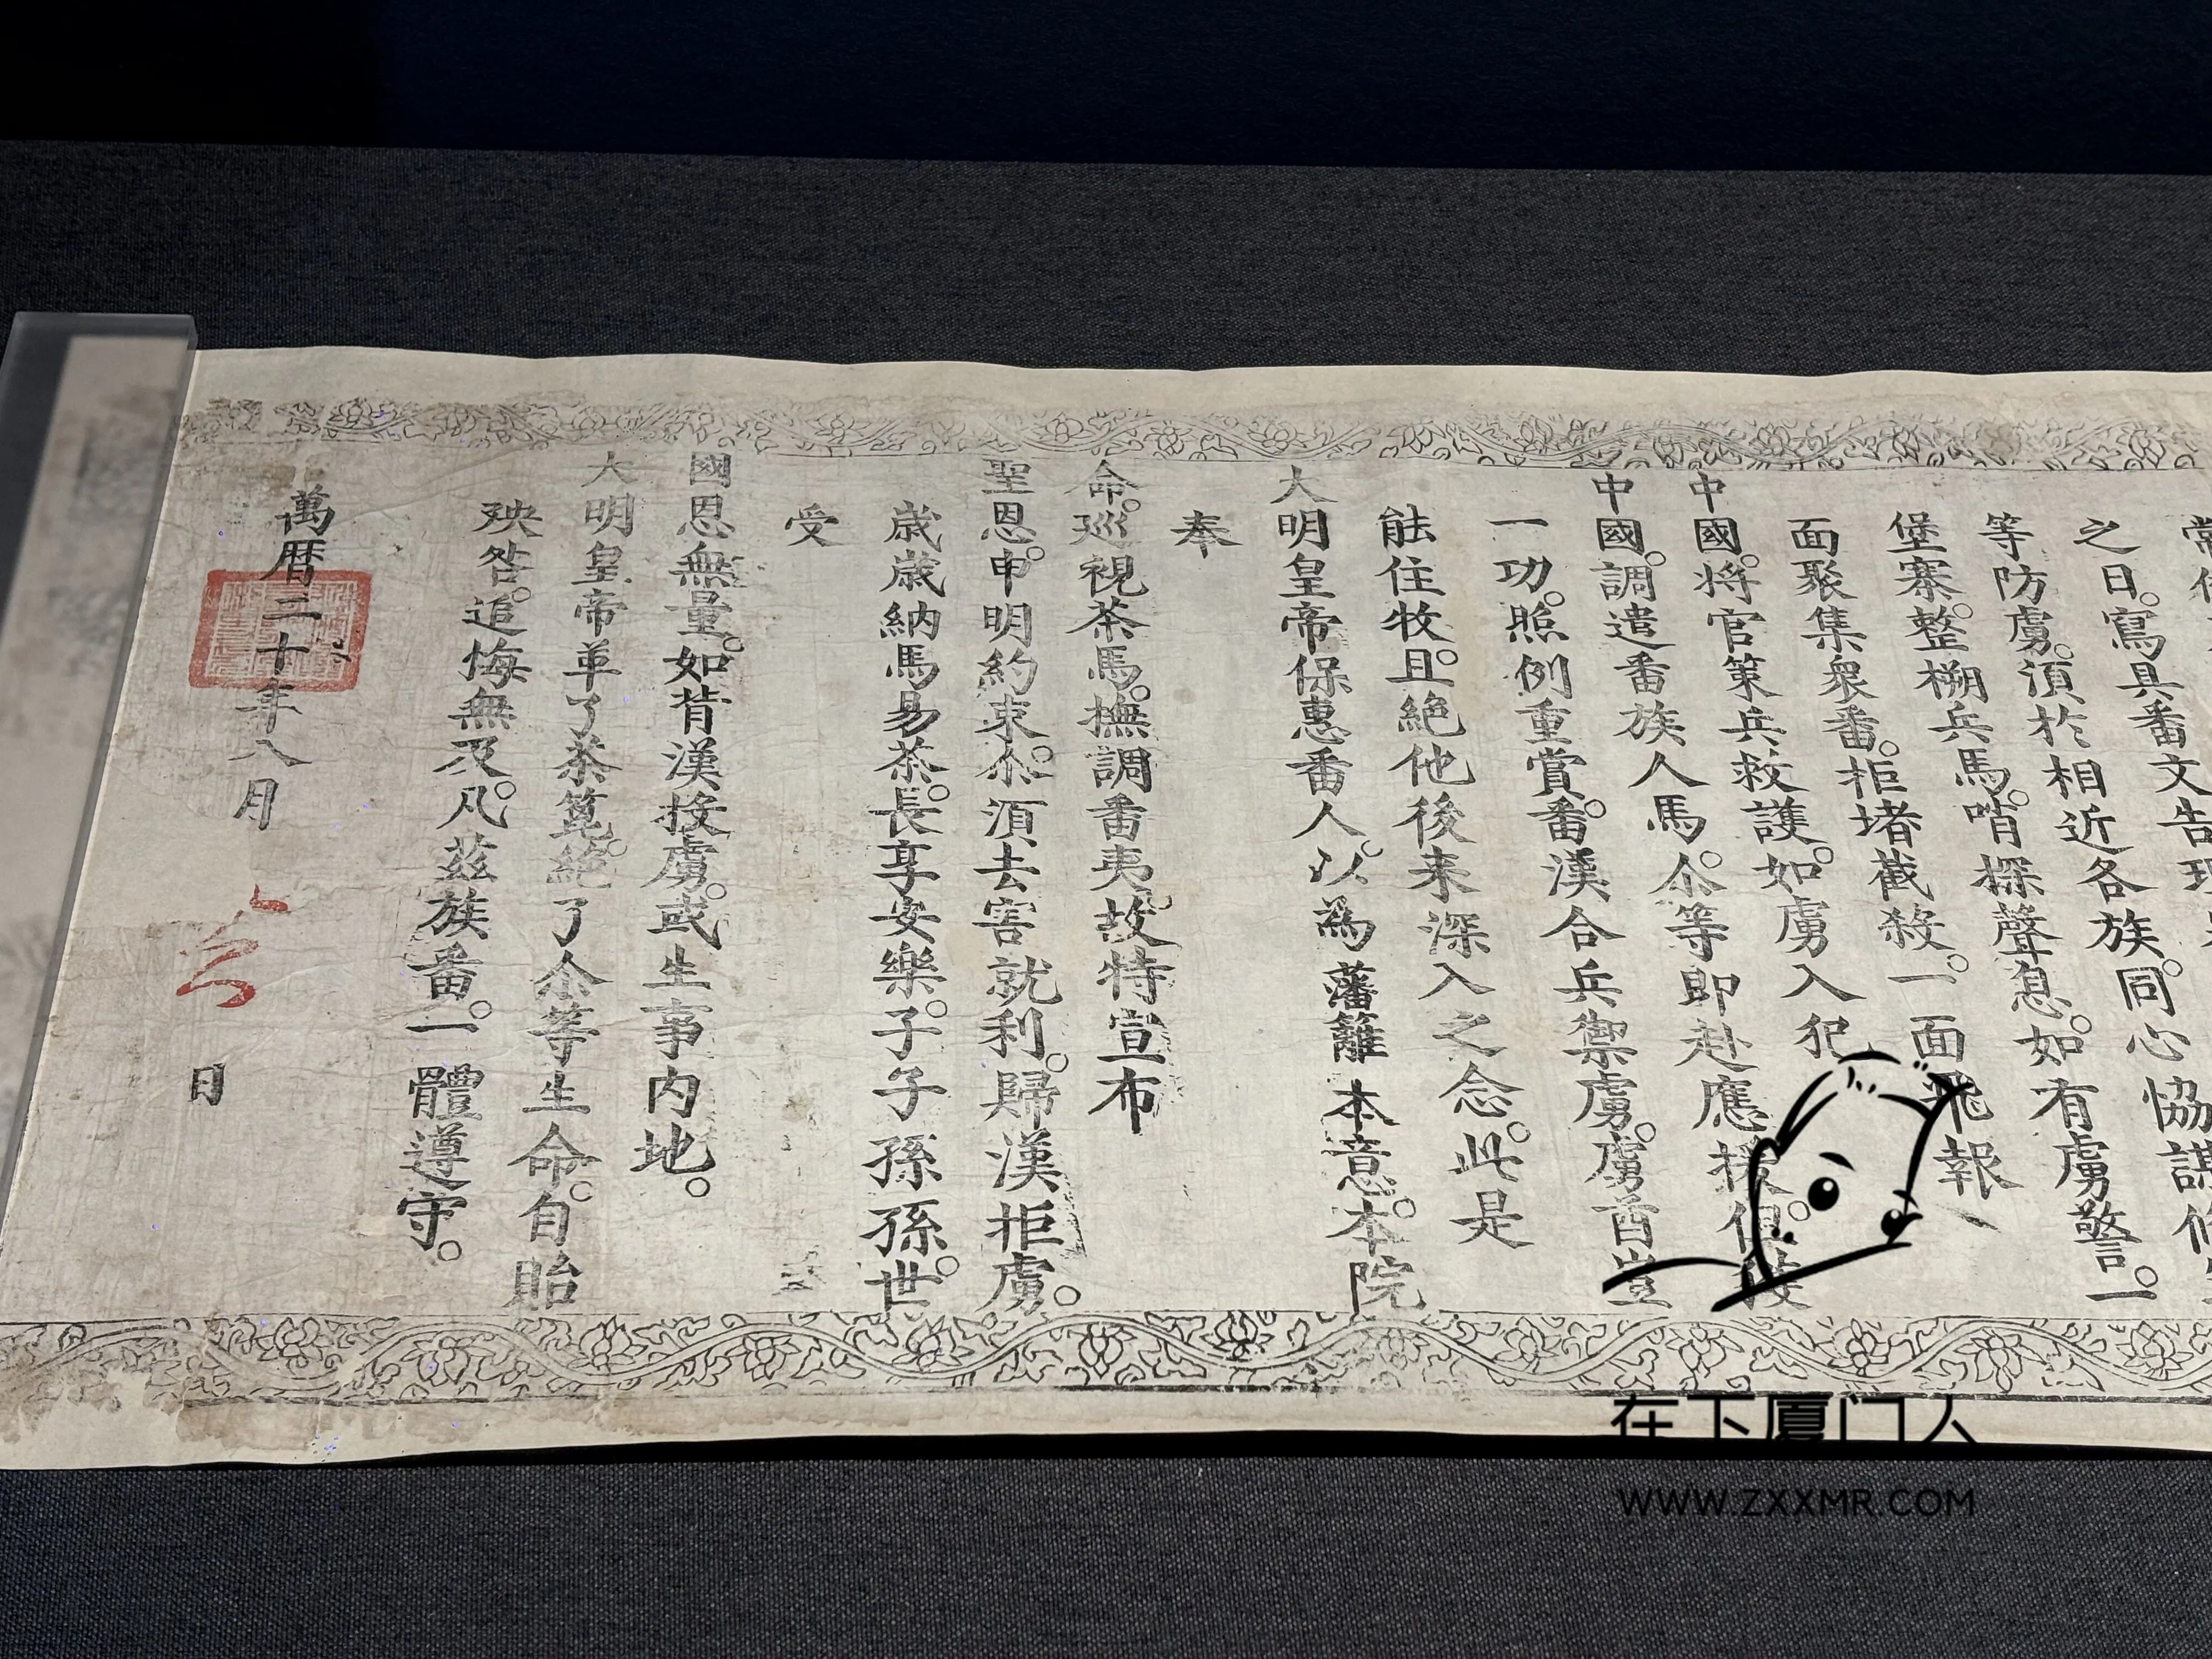 之日。寫具番文告
等防虜。須於相近各族。同心協
堡寨。整搠兵馬。哨探聲息。如有虜警。一
面聚集衆番。拒堵截殺。一面飛報
中國。將官策兵救護。如虜入犯
中國。調遣番族人馬。尒等即赴應援。但
一功。照例重賞。番漢合兵禦虜。虜酋豈
能住牧。且絕他後来深入之念。此是
大明皇帝保惠番人。以為藩籬本意。本院
奉
命。巡視茶馬。撫調番夷。故特宣布
聖恩。申明約束。尒須去害就利。歸漢拒虜。
歲歲納馬易茶。長享安樂。子子孫孫。世
受
國恩無量。如背漢投虜。或生事內地。
大明皇帝革了茶篦。絕了尒等生命。自貽
殃咎。追悔無及。凡茲族番。一體遵守。
萬曆二十年八月 日
在下厦门人
WWW.ZXXMR.COM